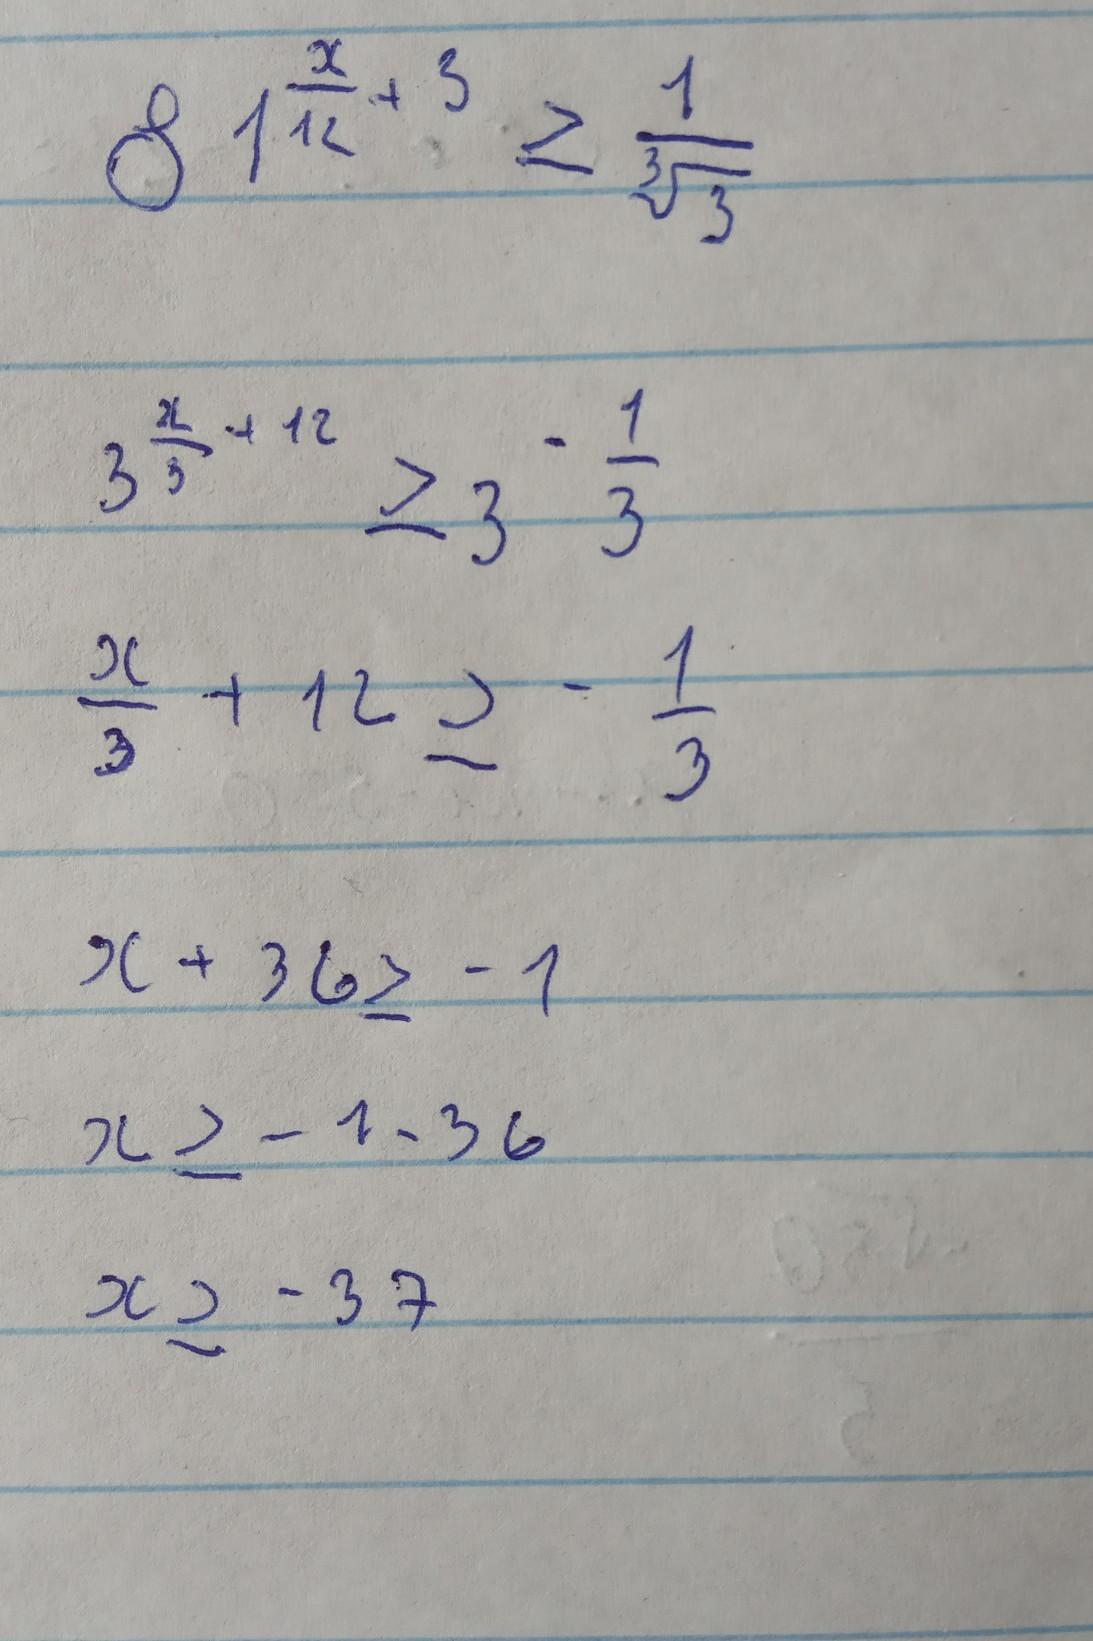 81^{\frac{x}{12}+3} ≥ \frac{1}{\sqrt[3]{3}}
3^{\frac{x}{3}+12} ≥ 3^{-\frac{1}{3}}
\frac{x}{3} + 12 ≥ -\frac{1}{3}
x + 36 ≥ -1
x ≥ -1-36
x ≥ -37